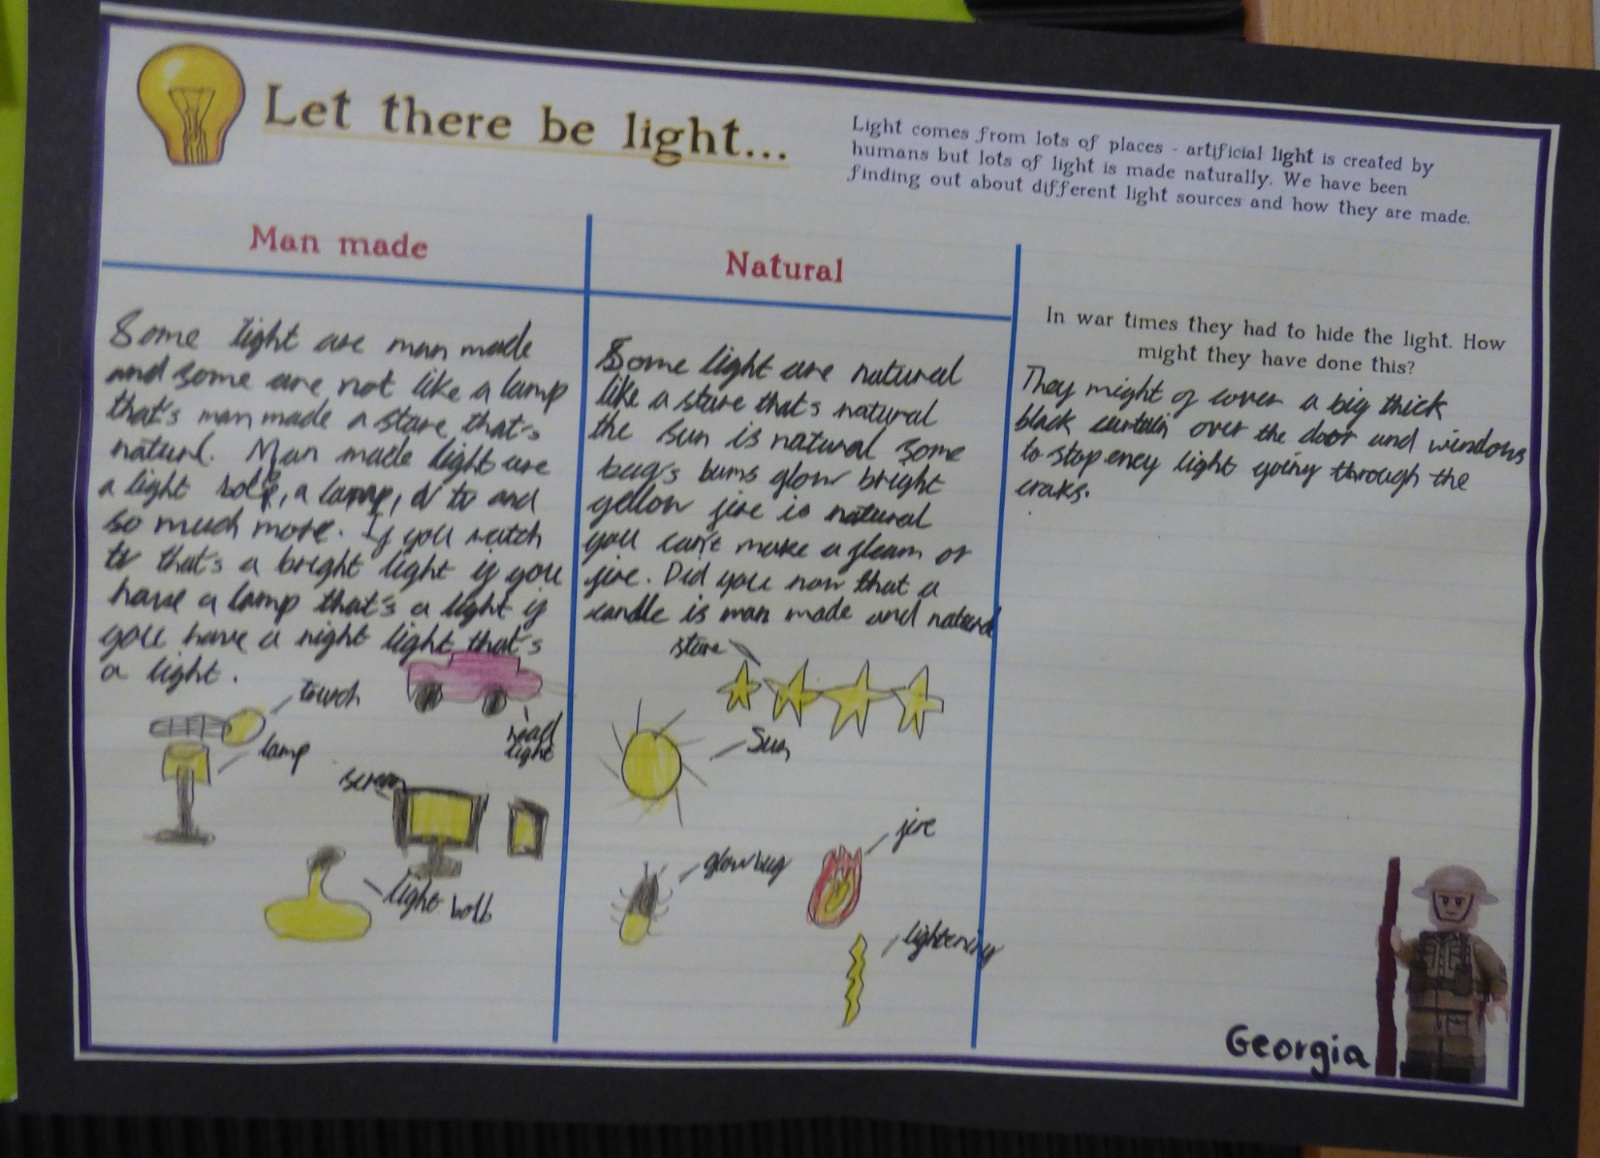 Let there be light...
Light comes from lots of places - artificial light is created by
humans but lots of light is made naturally. We have been
finding out about different light sources and how they are made.
Man made
Some light are man made
and some are not like a lamp
that's man made a stare that's
naturl. Man made light are
a light bolb, a lamp, a tv and
so much more. If you watch
tv that's a bright light if you
have a lamp that's a light if
you have a night light that's
a light.
touch
lamp
head
light
screen
light bolb
Natural
Some light are natural
like a stare that's natural
the sun is natural some
bugs bums glow bright
yellow fire is natural
you can't make a fleam or
fire. Did you now that a
candle is man made and natural
stare
Sun
glowbug
fire
lightening
In war times they had to hide the light. How
might they have done this?
They might of cover a big thick
black curtain over the door and windows
to stop eney light going through the
craks.
Georgia